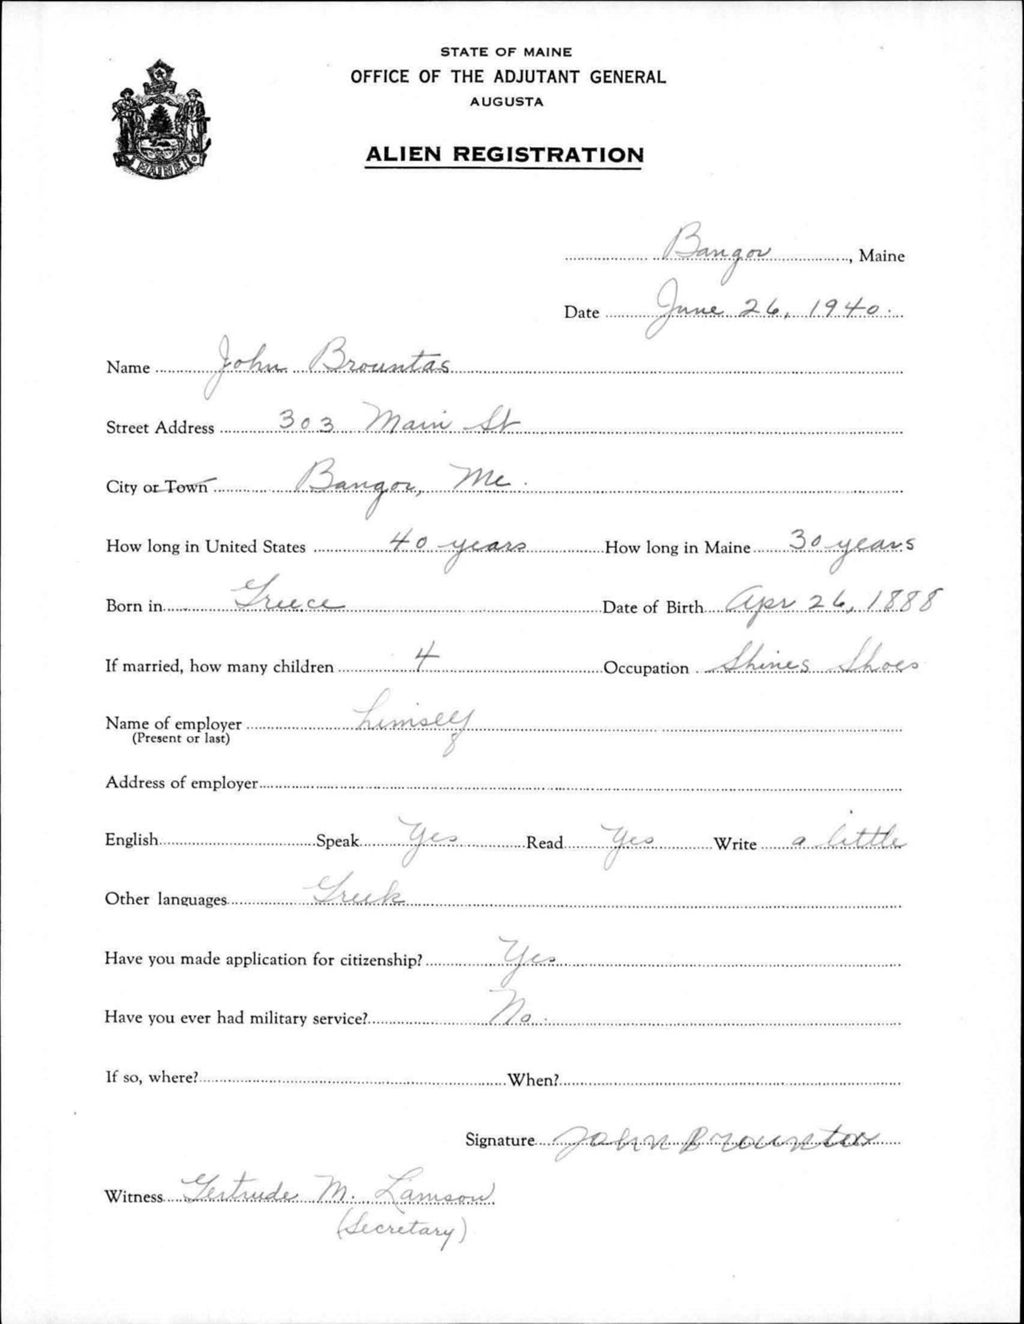 STATE OF MAINE
OFFICE OF THE ADJUTANT GENERAL
AUGUSTA
ALIEN REGISTRATION
MAINE
Bangor, Maine
Date June 26, 1940.
Name John Brountas
Street Address 303 Main St
City or Town Bangor, Me.
How long in United States 40 years How long in Maine 30 years
Born in Greece Date of Birth Apr 26, 1888
If married, how many children 4 Occupation Shines Shoes
Name of employer himself
(Present or last)
Address of employer
English Speak Yes Read Yes Write a little
Other languages Greek
Have you made application for citizenship? Yes
Have you ever had military service? No.
If so, where? When?
Signature John Brountas
Witness Gertrude M. Lamson
(Secretary)